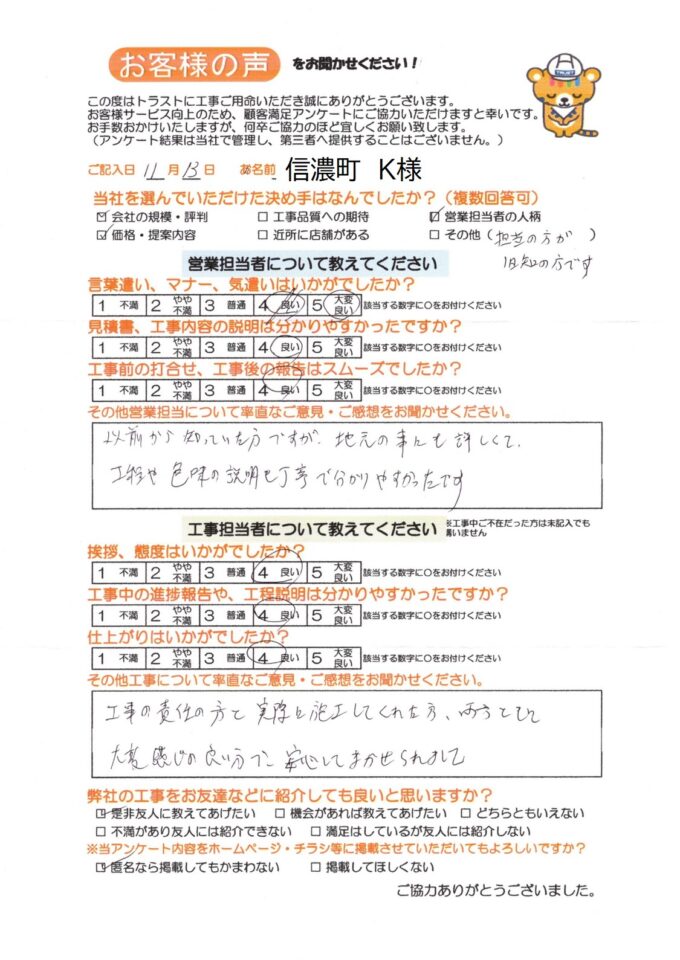 お客様の声 をお聞かせください!
TRUST
この度はトラストに工事ご用命いただき誠にありがとうございます。
お客様サービス向上のため、顧客満足アンケートにご協力いただけますと幸いです。
お手数おかけいたしますが、何卒ご協力のほど宜しくお願い致します。
(アンケート結果は当社で管理し、第三者へ提供することはございません。)
ご記入日 11月13日 お名前 信濃町 K様
当社を選んでいただけた決め手はなんでしたか?(複数回答可)
☑ 会社の規模・評判 □ 工事品質への期待 ☑ 営業担当者の人柄
☑ 価格・提案内容 □ 近所に店舗がある □ その他(担当の方が)
旧知の方です
営業担当者について教えてください
言葉遣い、マナー、気遣いはいかがでしたか?
1 不満 2 やや不満 3 普通 4 良い 5 大変良い 該当する数字に〇をお付けください
見積書、工事内容の説明は分かりやすかったですか?
1 不満 2 やや不満 3 普通 4 良い 5 大変良い 該当する数字に〇をお付けください
工事前の打合せ、工事後の報告はスムーズでしたか?
1 不満 2 やや不満 3 普通 4 良い 5 大変良い 該当する数字に〇をお付けください
その他営業担当について率直なご意見・ご感想をお聞かせください。
以前から知っていた方ですが、地元の事にも詳しくて、
工程や色味の説明も丁寧で分かりやすかったです
工事担当者について教えてください ※工事中ご不在だった方は未記入でも構いません
挨拶、態度はいかがでしたか?
1 不満 2 やや不満 3 普通 4 良い 5 大変良い 該当する数字に〇をお付けください
工事中の進捗報告や、工程説明は分かりやすかったですか?
1 不満 2 やや不満 3 普通 4 良い 5 大変良い 該当する数字に〇をお付けください
仕上がりはいかがでしたか?
1 不満 2 やや不満 3 普通 4 良い 5 大変良い 該当する数字に〇をお付けください
その他工事について率直なご意見・ご感想をお聞かせください。
工事の責任の方と実際に施工してくれた方、両方とても
大変感じの良い方で、安心してまかせられました
弊社の工事をお友達などに紹介しても良いと思いますか?
☑ 是非友人に教えてあげたい □ 機会があれば教えてあげたい □ どちらともいえない
□ 不満があり友人には紹介できない □ 満足はしているが友人には紹介しない
※当アンケート内容をホームページ・チラシ等に掲載させていただいてもよろしいですか?
☑ 匿名なら掲載してもかまわない □ 掲載してほしくない
ご協力ありがとうございました。